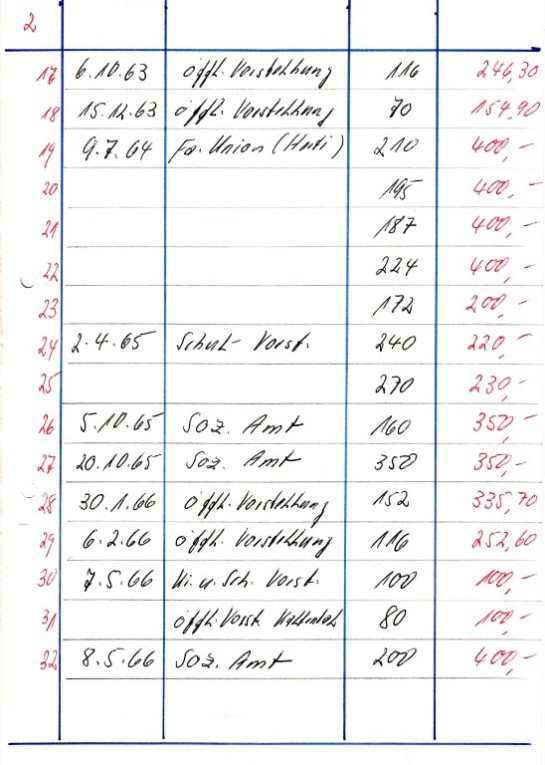 2
17 6.10.63 öffl. Vorstellung 116 246,30
18 15.12.63 öffl. Vorstellung 70 154,90
19 9.7.64 Fa. Union (Herti) 210 400,-
20 195 400,-
21 187 400,-
22 224 400,-
23 172 200,-
24 2.4.65 Schul-Vorst. 240 220,-
25 270 230,-
26 5.10.65 Soz. Amt 160 350,-
27 20.10.65 Soz. Amt 350 350,-
28 30.1.66 öffl. Vorstellung 152 335,70
29 6.2.66 öffl. Vorstellung 116 252,60
30 7.5.66 Ki. u. Sch. Vorst. 100 100,-
31 öffl. Vorst. 80 100,-
32 8.5.66 Soz. Amt 200 400,-